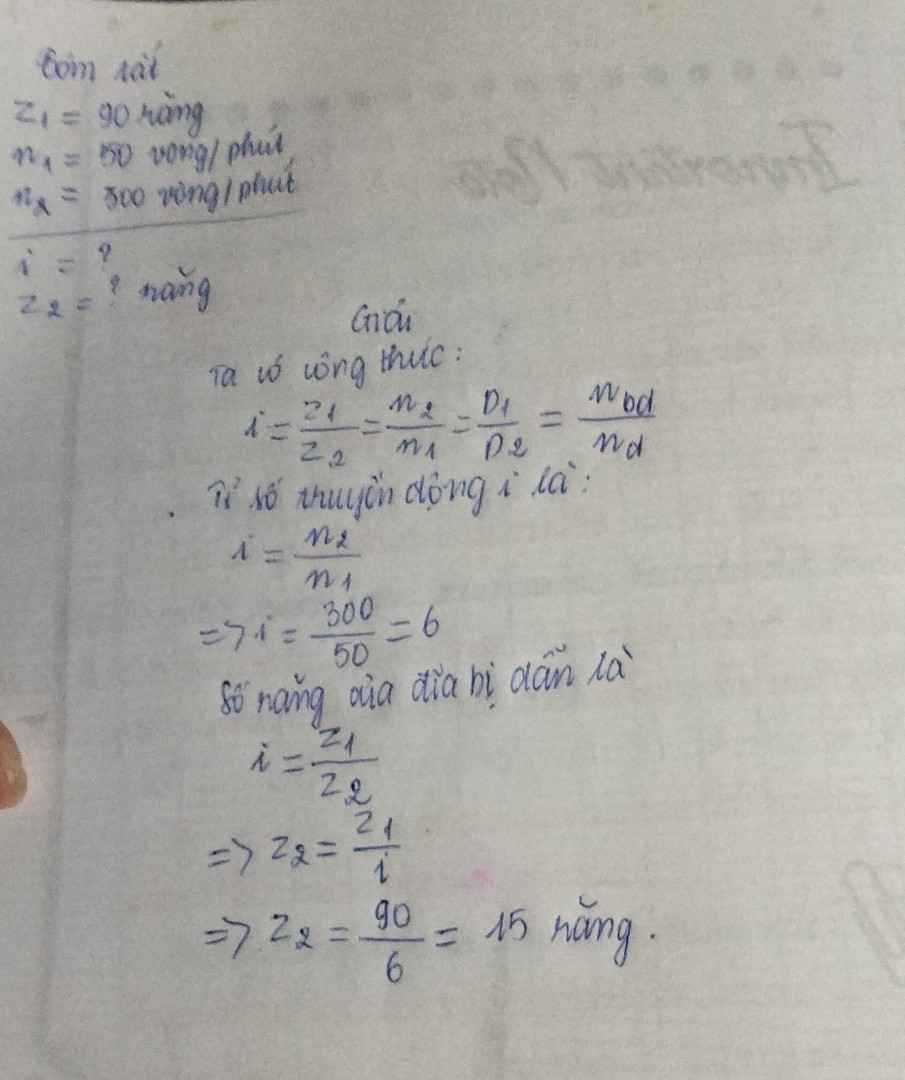 Tóm tắt
Z1 = 90 răng
n1 = 50 vòng/phút
n2 = 300 vòng/phút
i = ?
Z2 = ? răng
Giải
Ta có công thức:
i = Z1/Z2 = n2/n1 = D1/D2 = nbd/nd
Tỉ số truyền động i là:
i = n2/n1
=> i = 300/50 = 6
Số răng của đĩa bị dẫn là
i = Z1/Z2
=> Z2 = Z1/i
=> Z2 = 90/6 = 15 răng.